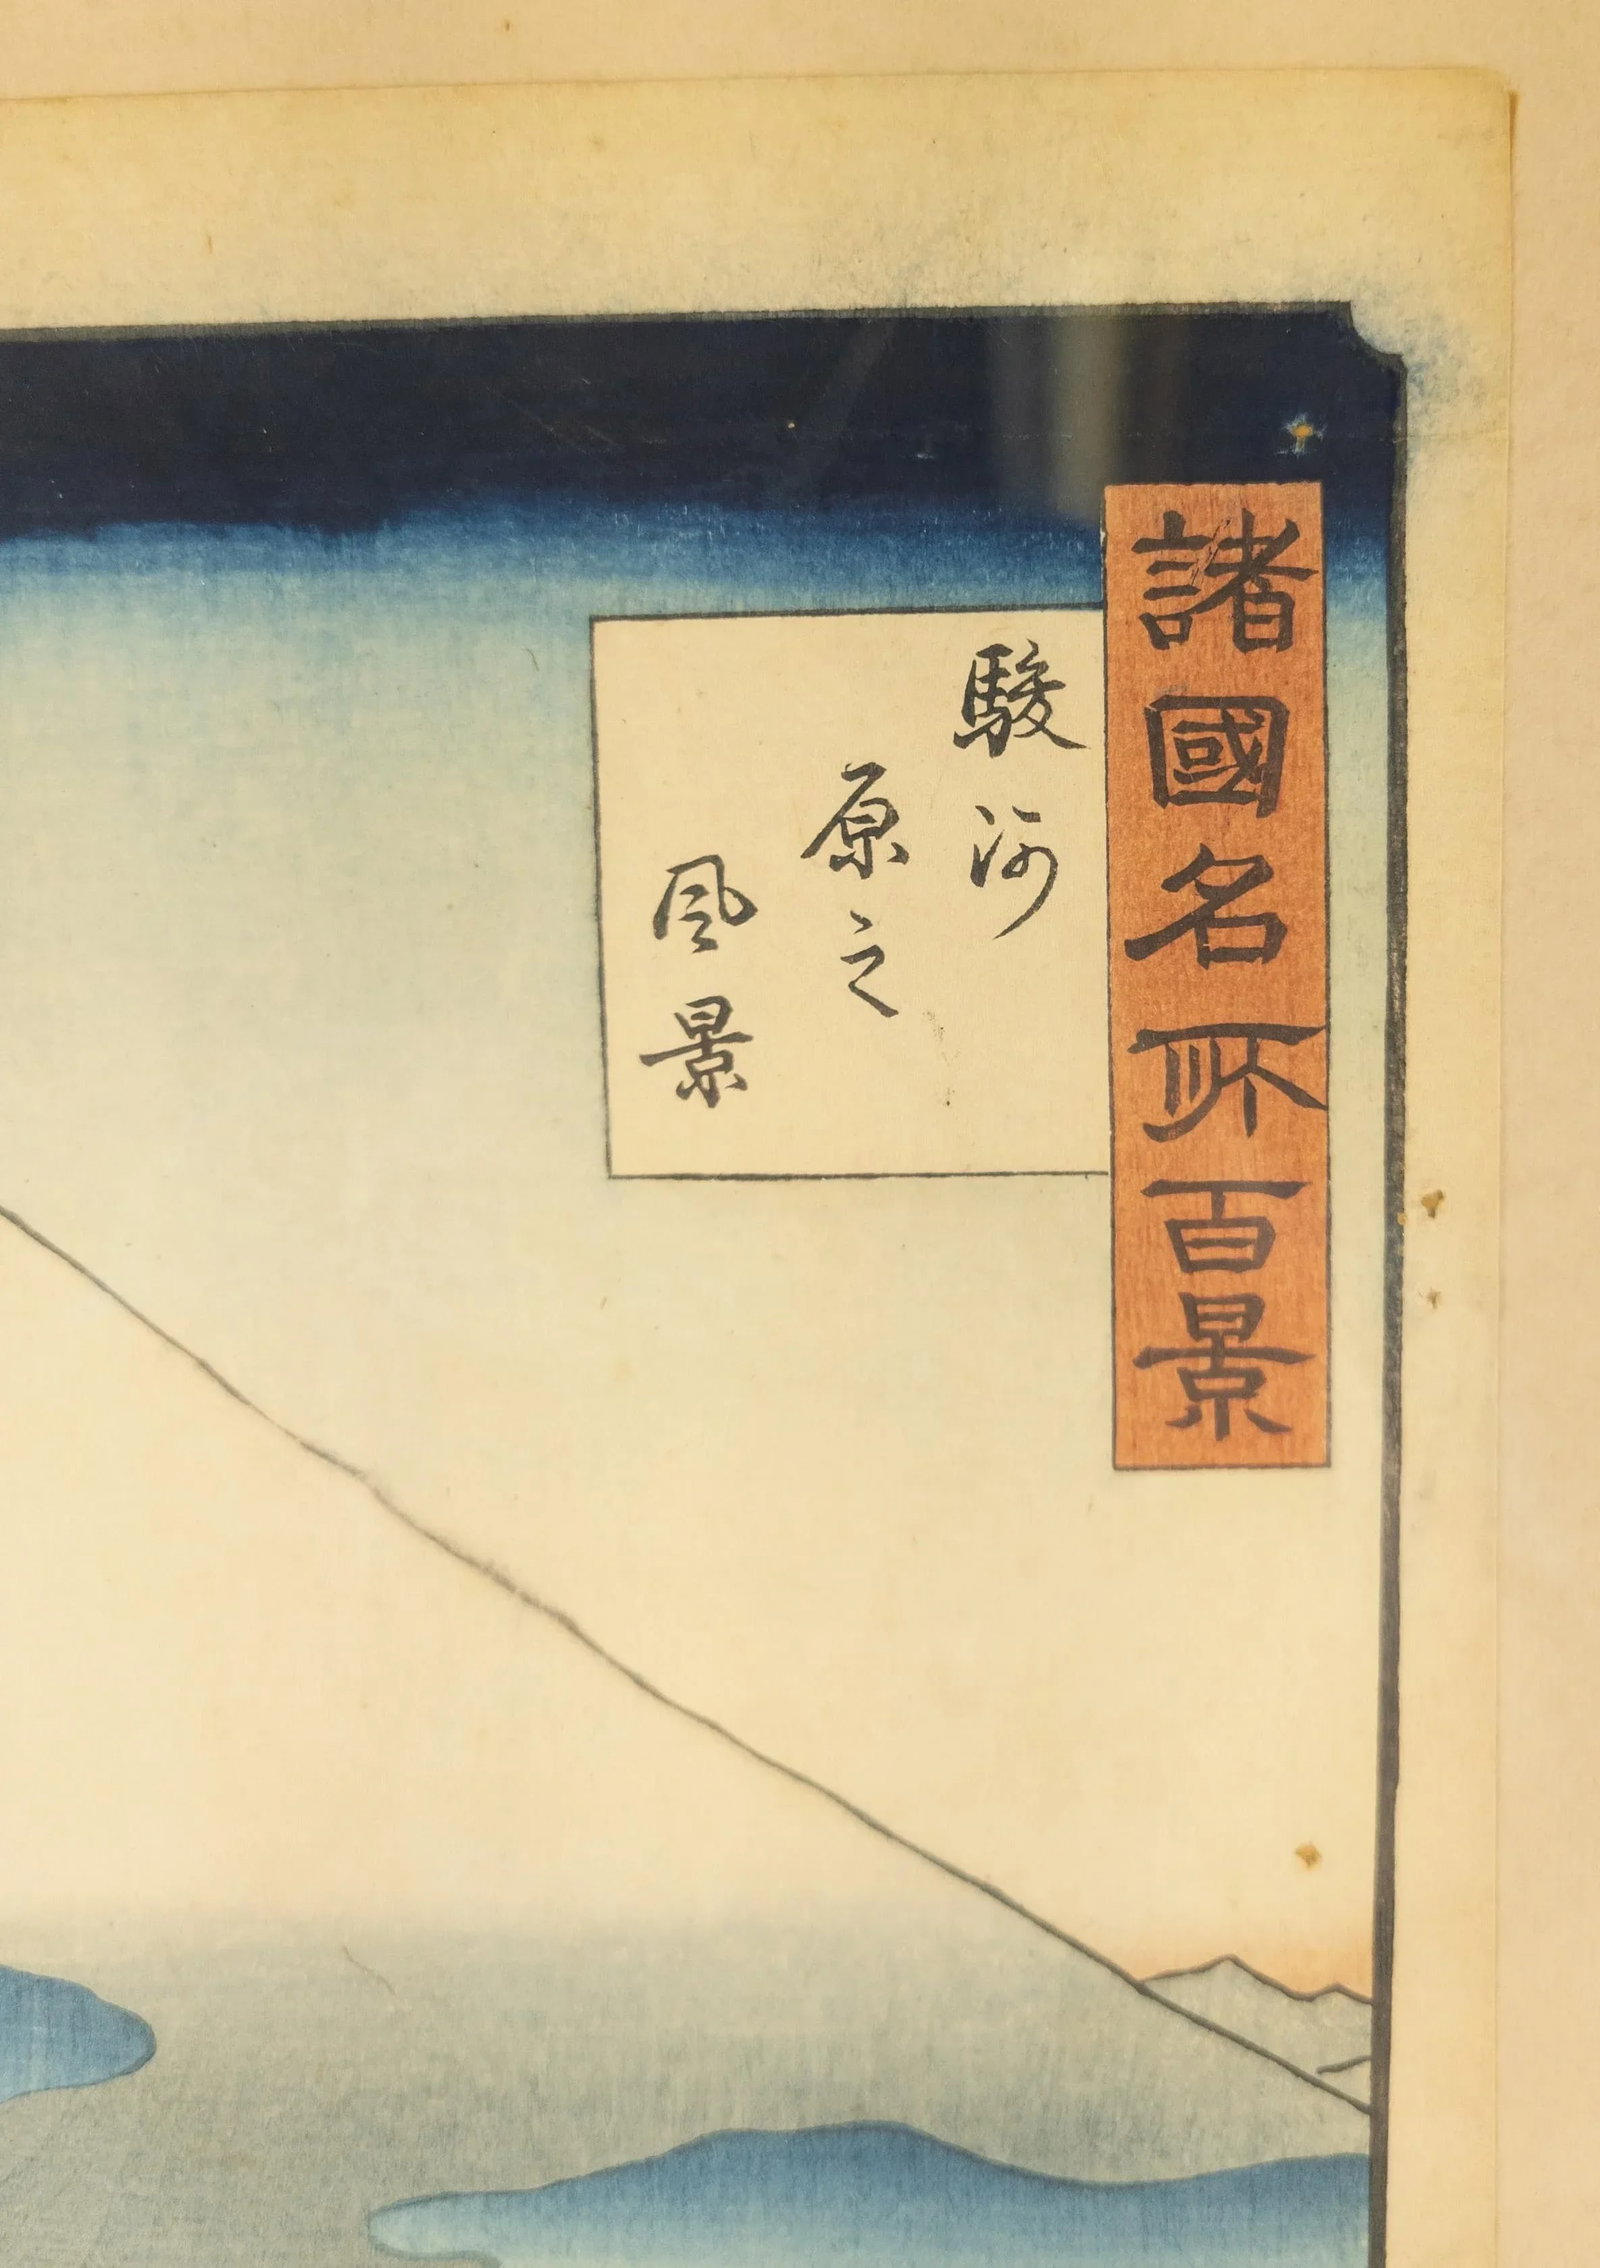 諸國名所百景
駿河
原之
風景